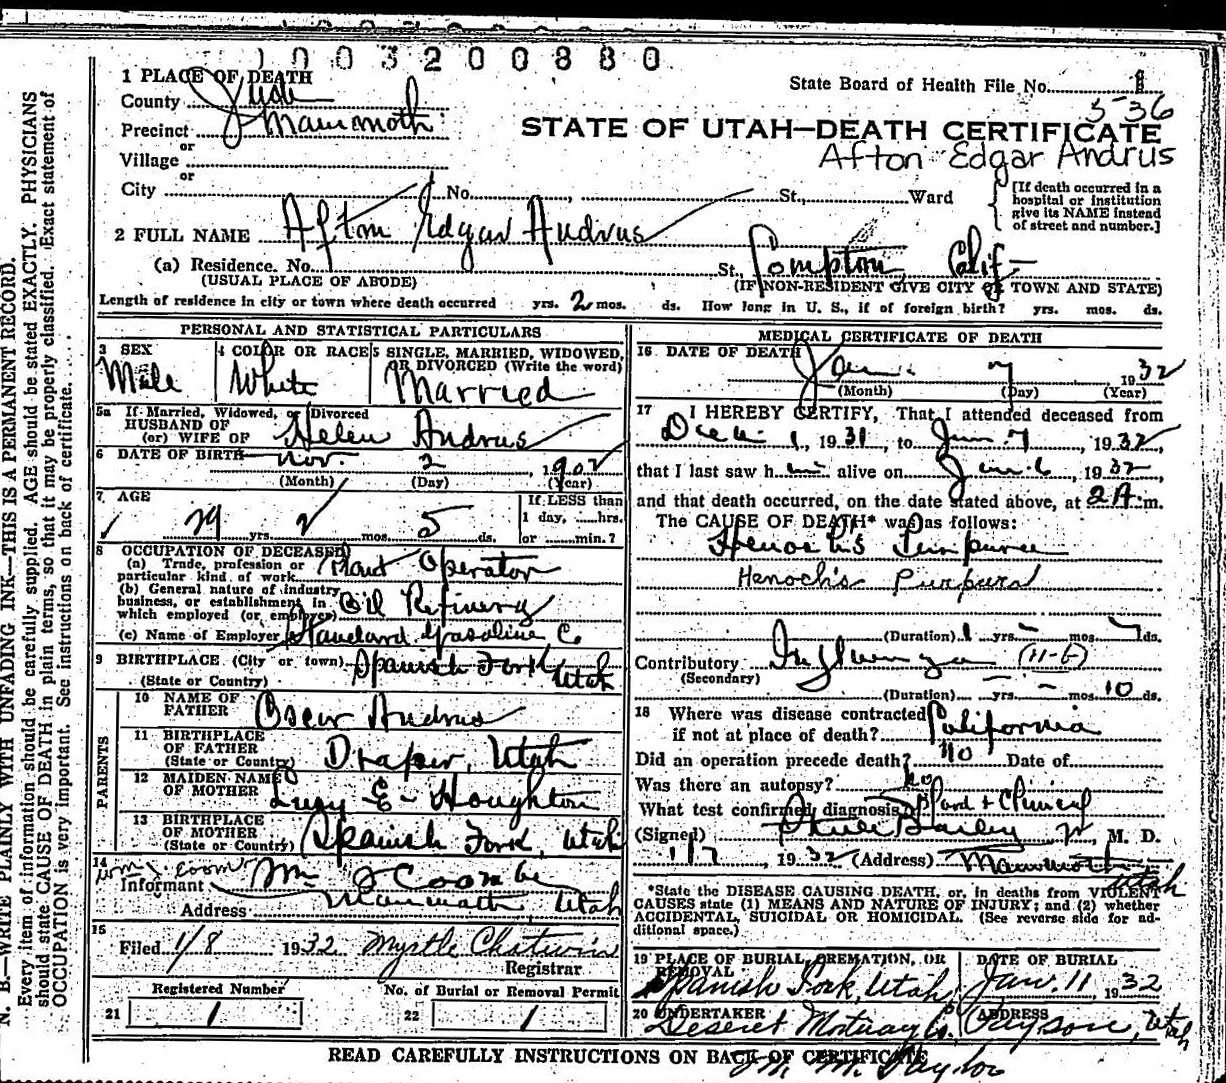 1003200880
1 PLACE OF DEATH
State Board of Health File No. 1
County Juab
536
Precinct Mammoth
STATE OF UTAH—DEATH CERTIFICATE
or
Village
Afton Edgar Andrus
or
City No. , St., Ward
[If death occurred in a
hospital or institution
give its NAME instead
of street and number.]
2 FULL NAME Afton Edgar Andrus
(a) Residence. No. St, Compton, Calif
(USUAL PLACE OF ABODE) (IF NON-RESIDENT GIVE CITY OR TOWN AND STATE)
Length of residence in city or town where death occurred yrs. 2 mos. ds. How long in U. S., if of foreign birth? yrs. mos. ds.
PERSONAL AND STATISTICAL PARTICULARS
3 SEX 4 COLOR OR RACE 5 SINGLE, MARRIED, WIDOWED,
OR DIVORCED (Write the word)
Male White Married
5a If Married, Widowed, or Divorced
HUSBAND OF
(or) WIFE OF Helen Andrus
6 DATE OF BIRTH Nov. 2, 1902
(Month) (Day) (Year)
7 AGE If LESS than
1 day, hrs.
29 yrs. 2 mos. 5 ds. or min.?
8 OCCUPATION OF DECEASED
(a) Trade, profession or
particular kind of work Plant Operator
(b) General nature of industry
business, or establishment in
which employed (or employer) Oil Refinery
(c) Name of Employer Standard Gasoline Co.
9 BIRTHPLACE (City or town) Spanish Fork
(State or Country) Utah
PARENTS
10 NAME OF
FATHER Oscar Andrus
11 BIRTHPLACE
OF FATHER
(State or Country) Draper, Utah
12 MAIDEN NAME
OF MOTHER Lucy E Houghton
13 BIRTHPLACE
OF MOTHER
(State or Country) Spanish Fork, Utah
14
Informant Wm J Coombs
Address Mammoth, Utah
15
Filed 1/8 1932 Myrtle Chatwin
Registrar
Registered Number No. of Burial or Removal Permit
21 1 22 1
MEDICAL CERTIFICATE OF DEATH
16 DATE OF DEATH
Jan. 7 1932
(Month) (Day) (Year)
17 I HEREBY CERTIFY, That I attended deceased from
Dec 1, 1931, to Jan. 7, 1932
that I last saw him alive on Jan. 6, 1932
and that death occurred, on the date stated above, at 2 A. m.
The CAUSE OF DEATH* was as follows:
Henoch's Purpura
Henoch's Purpura
(Duration) 1 yrs. – mos. 7 ds.
Contributory Influenza (11-b)
(Secondary)
(Duration) – yrs. – mos. 10 ds.
18 Where was disease contracted
if not at place of death? California
Did an operation precede death? no Date of
Was there an autopsy? no
What test confirmed diagnosis? Blood + Clinical
(Signed) Steele Bailey Jr, M. D.
1/7, 1932 (Address) Mammoth
Utah
*State the DISEASE CAUSING DEATH, or, in deaths from VIOLENT
CAUSES state (1) MEANS AND NATURE OF INJURY; and (2) whether
ACCIDENTAL, SUICIDAL OR HOMICIDAL. (See reverse side for ad-
ditional space.)
19 PLACE OF BURIAL, CREMATION, OR
REMOVAL
Spanish Fork, Utah,
DATE OF BURIAL
Jan. 11, 1932
20 UNDERTAKER
Deseret Mortuary Co.
ADDRESS
Payson, Utah
READ CAREFULLY INSTRUCTIONS ON BACK OF CERTIFICATE
N. B.—WRITE PLAINLY WITH UNFADING INK—THIS IS A PERMANENT RECORD.
Every item of information should be carefully supplied. AGE should be stated EXACTLY. PHYSICIANS
should state CAUSE OF DEATH in plain terms, so that it may be properly classified. Exact statement of
OCCUPATION is very important. See instructions on back of certificate.